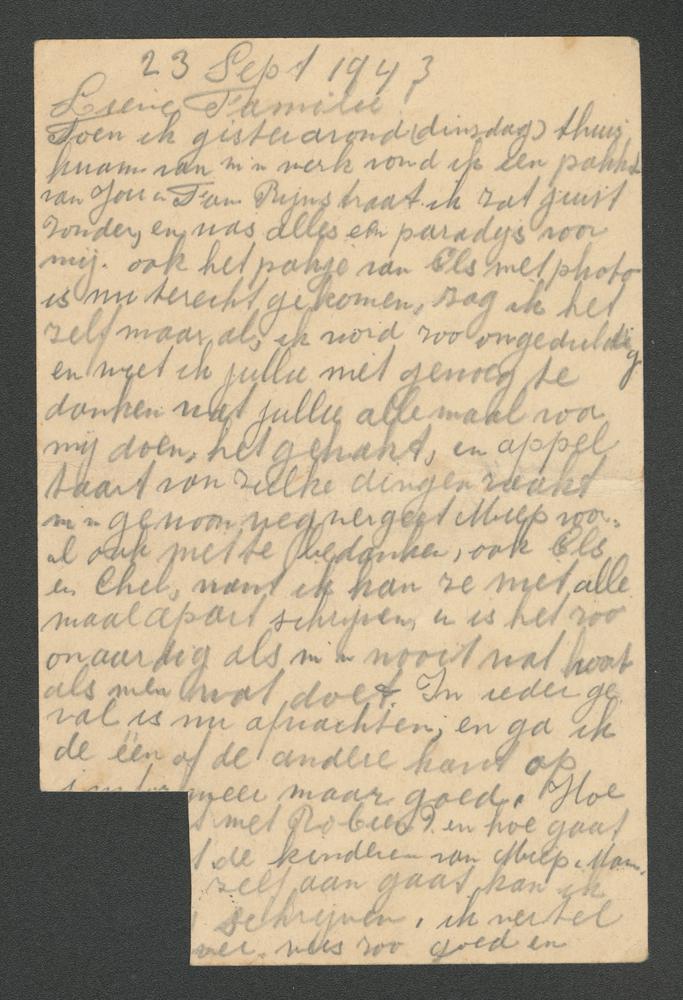 23 Sept 1943
Lieve Familie
Toen ik gisteravond (dinsdag) thuis
kwam van m'n werk vond ik een pakket
van Jou en Fam Rijnstraat ik zat juist
zonder, en was alles een paradijs voor
mij. ook het pakje van Els met photo
is nu terecht gekomen, zag ik het
zelf maar als, ik word zoo ongeduldig
en weet ik jullie niet genoeg te
danken wat jullie allemaal voor
mij doen, het gebakt, en appel
taart van zulke dingen raakt
m'n gewoon weg vergeet Miep voor-
al ook niet te bedanken, ook Els
en Chel, want ik kan ze niet alle
maal apart schrijven, en is het zoo
onaardig als m'n nooit wat hoort
als men wat doet In ieder ge
val is nu afwachten, en ga ik
de één of de andere kant op
weer maar goed. Hoe
met Robbers? en hoe gaat
de kinderen van Miep. Mam.
zelf aan gaat kan ik
schrijven, ik vertel
wees zoo goed en